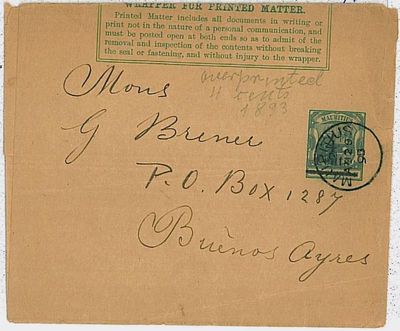 WRAPPER FOR PRINTED MATTER.
Printed Matter includes all documents in writing or
print not in the nature of a personal communication, and
must be posted open at both ends so as to admit of the
removal and inspection of the contents without breaking
the seal or fastening, and without injury to the wrapper.
overprinted
4 cents
1893
Mons
G Brener
P. O. Box 1287
Buenos Ayres
MAURITIUS
93